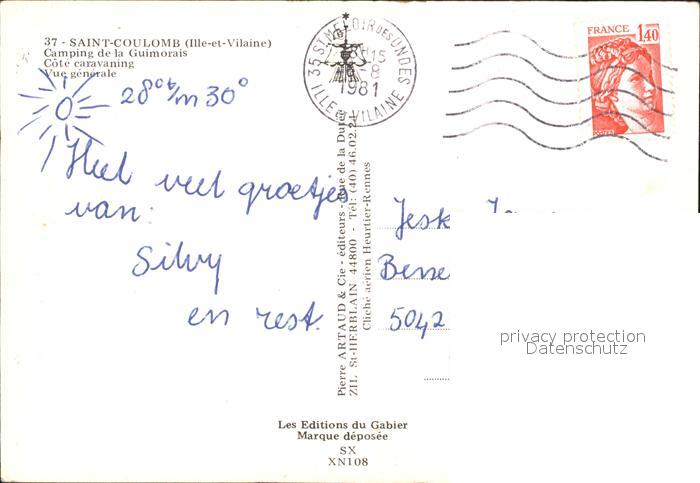 37 - SAINT-COULOMB (Ille-et-Vilaine)
Camping de la Guimorais
Côté caravaning
Vue générale
28° t/m 30°
Heel veel groetjes
van:
Silvy
en rest.
35 ST MELOIR DES ONDES
15
-8
1981
ILLE ET VILAINE
FRANCE
1,40
POSTES
Pierre ARTAUD & Cie - éditeurs - Rue de la
ZIL St-HERBLAIN 44800 - Tél: (40) 46.02.
Cliché aérien Heurtier-Rennes
Jesk
Besse
5042
privacy protection
Datenschutz
Les Editions du Gabier
Marque déposée
SX
XN108